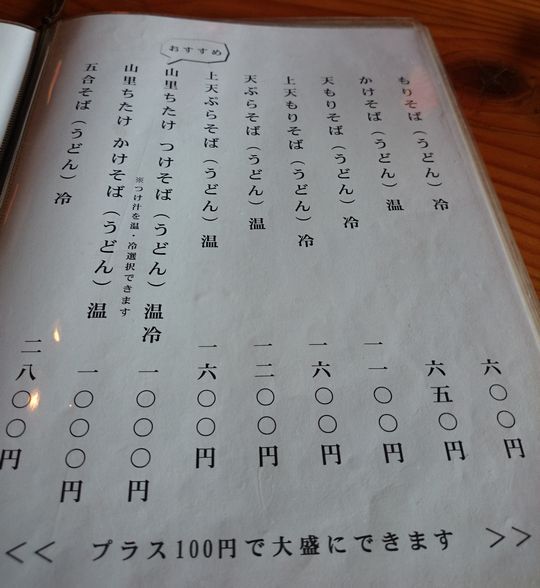 もりそば（うどん）冷 六〇〇円
かけそば（うどん）温 六五〇円
天もりそば（うどん）冷 一一〇〇円
上天もりそば（うどん）冷 一六〇〇円
天ぷらそば（うどん）温 一二〇〇円
上天ぷらそば（うどん）温 一六〇〇円
おすすめ
山里ちたけ つけそば（うどん）温冷 一〇〇〇円
※つけ汁を温・冷選択できます
山里ちたけ かけそば（うどん）温 一〇〇〇円
五合そば（うどん）冷 二八〇〇円
<< プラス100円で大盛にできます >>